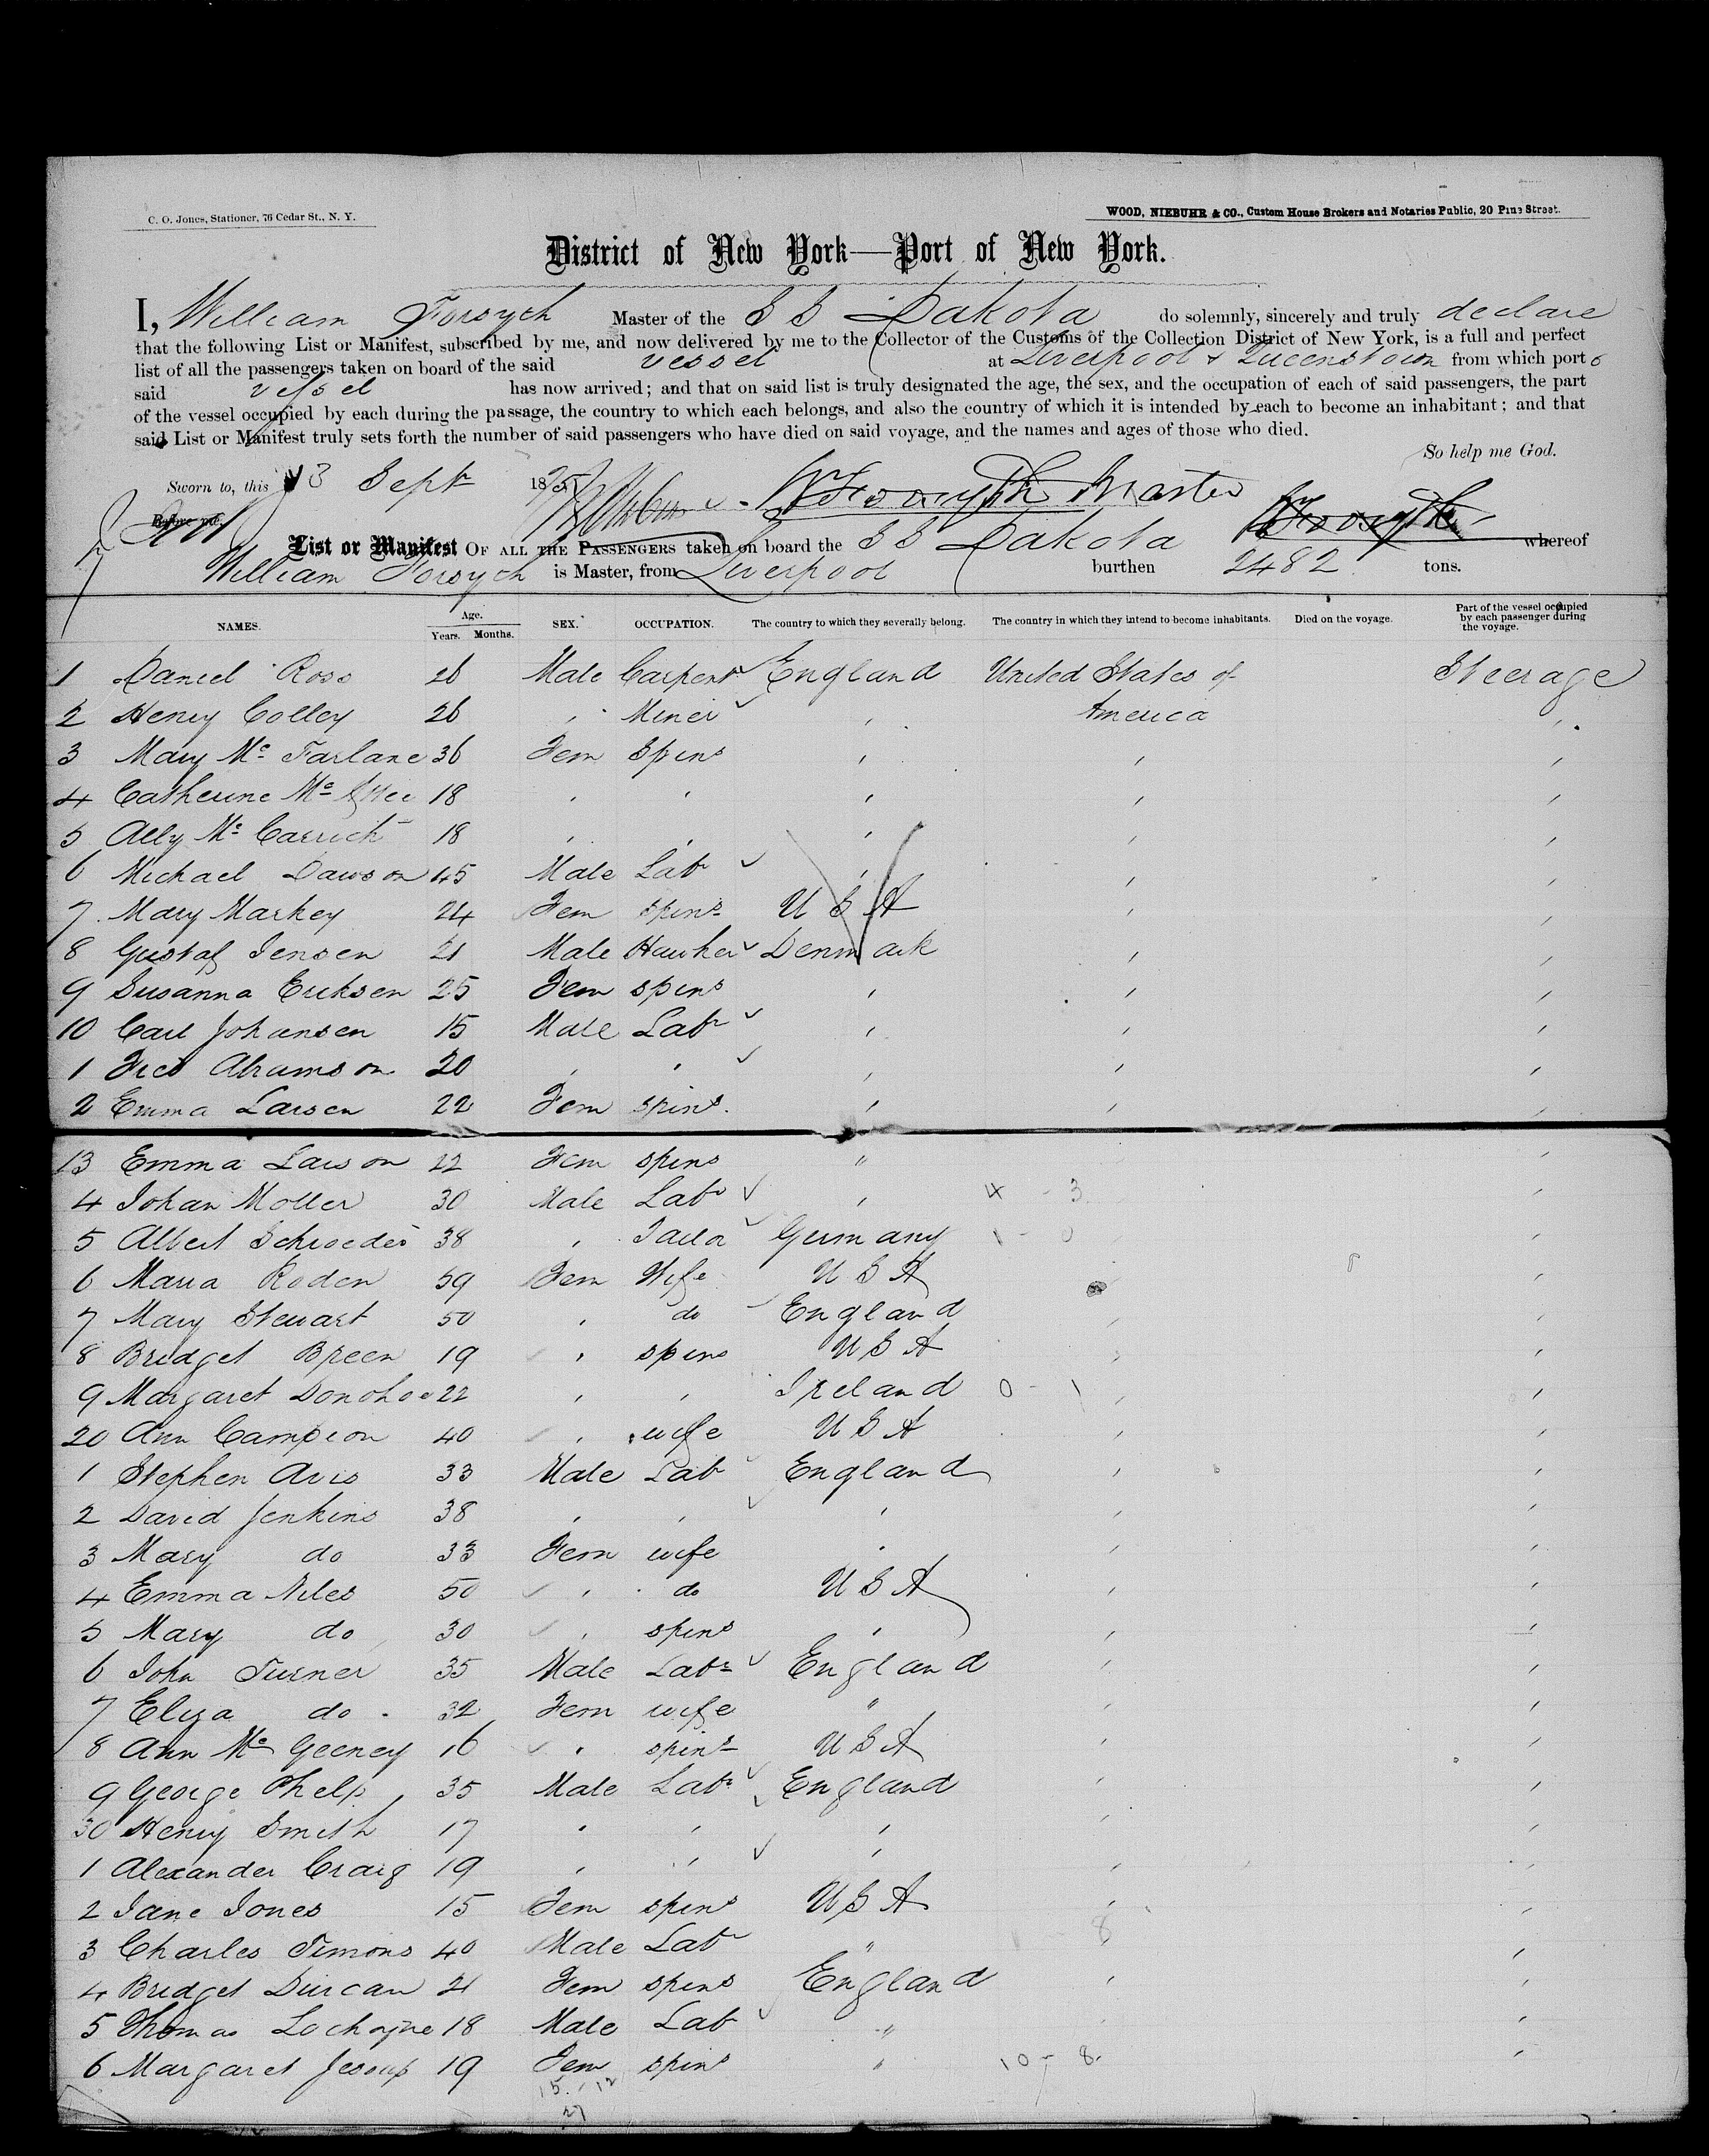 C. O. Jones, Stationer, 76 Cedar St., N. Y.
WOOD, NIEBUHR & CO., Custom House Brokers and Notaries Public, 20 Pine Street.
District of New York—Port of New York.
I, William Forsyth Master of the S S Dakota do solemnly, sincerely and truly declare
that the following List or Manifest, subscribed by me, and now delivered by me to the Collector of the Customs of the Collection District of New York, is a full and perfect
list of all the passengers taken on board of the said vessel at Liverpool & Queenstown from which port s
said vessel has now arrived; and that on said list is truly designated the age, the sex, and the occupation of each of said passengers, the part
of the vessel occupied by each during the passage, the country to which each belongs, and also the country of which it is intended by each to become an inhabitant; and that
said List or Manifest truly sets forth the number of said passengers who have died on said voyage, and the names and ages of those who died.
So help me God.
Sworn to, this 13 Sept 1875 W Forsyth Master
Before me,
List or Manifest OF ALL THE PASSENGERS taken on board the S S Dakota whereof
William Forsyth is Master, from Liverpool burthen 2482 tons.
NAMES. Age. Years. Months. SEX. OCCUPATION. The country to which they severally belong. The country in which they intend to become inhabitants. Died on the voyage. Part of the vessel occupied by each passenger during the voyage.
1 Daniel Ross 26 Male Carpentr England United States of Steerage
2 Henry Colley 26 " Miner " America "
3 Mary Mc Farlane 36 Fem Spins " " "
4 Catherine Mc 18 " " " " "
5 Ally Mc Carrick 18 " " " " "
6 Michael Dawson 45 Male Labr " " "
7 Mary Markey 24 Fem spins U S A " "
8 Gustaf Jensen 21 Male Hawker Denmark " "
9 Susanna Eriksen 25 Fem spins " " "
10 Carl Johansen 15 Male Labr " " "
1 Abramson 20 " " " " "
2 Emma Larsen 22 Fem spins " " "
13 Emma Lawson 22 Fem spins " "
4 Johan Moller 30 Male Labr " 4 - 3 "
5 Albert Schroeder 38 " Tailor Germany 1 - 0 "
6 Maria Roden 59 Fem Wife U S A " "
7 Mary Stewart 50 " do England " "
8 Bridget Breen 19 " spins U S A " "
9 Margaret Donohoe 22 " " Ireland 0 - 1 " "
20 Ann Campion 40 " wife U S A " "
1 Stephen Avis 33 Male Lab England " "
2 David Jenkins 38 " " " " "
3 Mary do 33 Fem wife " " "
4 Emma Niles 50 " do U S A " "
5 Mary do 30 " spins " " "
6 John Turner 35 Male Labr England " "
7 Eliza do 32 Fem wife " " "
8 Ann Mc Geeney 16 " spins U S A " "
9 George Phelp 35 Male Labr England " "
30 Henry Smith 17 " " " " "
1 Alexander Craig 19 " " " " "
2 Jane Jones 15 Fem spins U S A " "
3 Charles Timons 40 Male Labr " 8 "
4 Bridget Durcan 21 Fem spins England " "
5 Thomas 18 Male Lab " " "
6 Margaret Jessup 19 Fem spins " 10 - 8 "
15 12
27